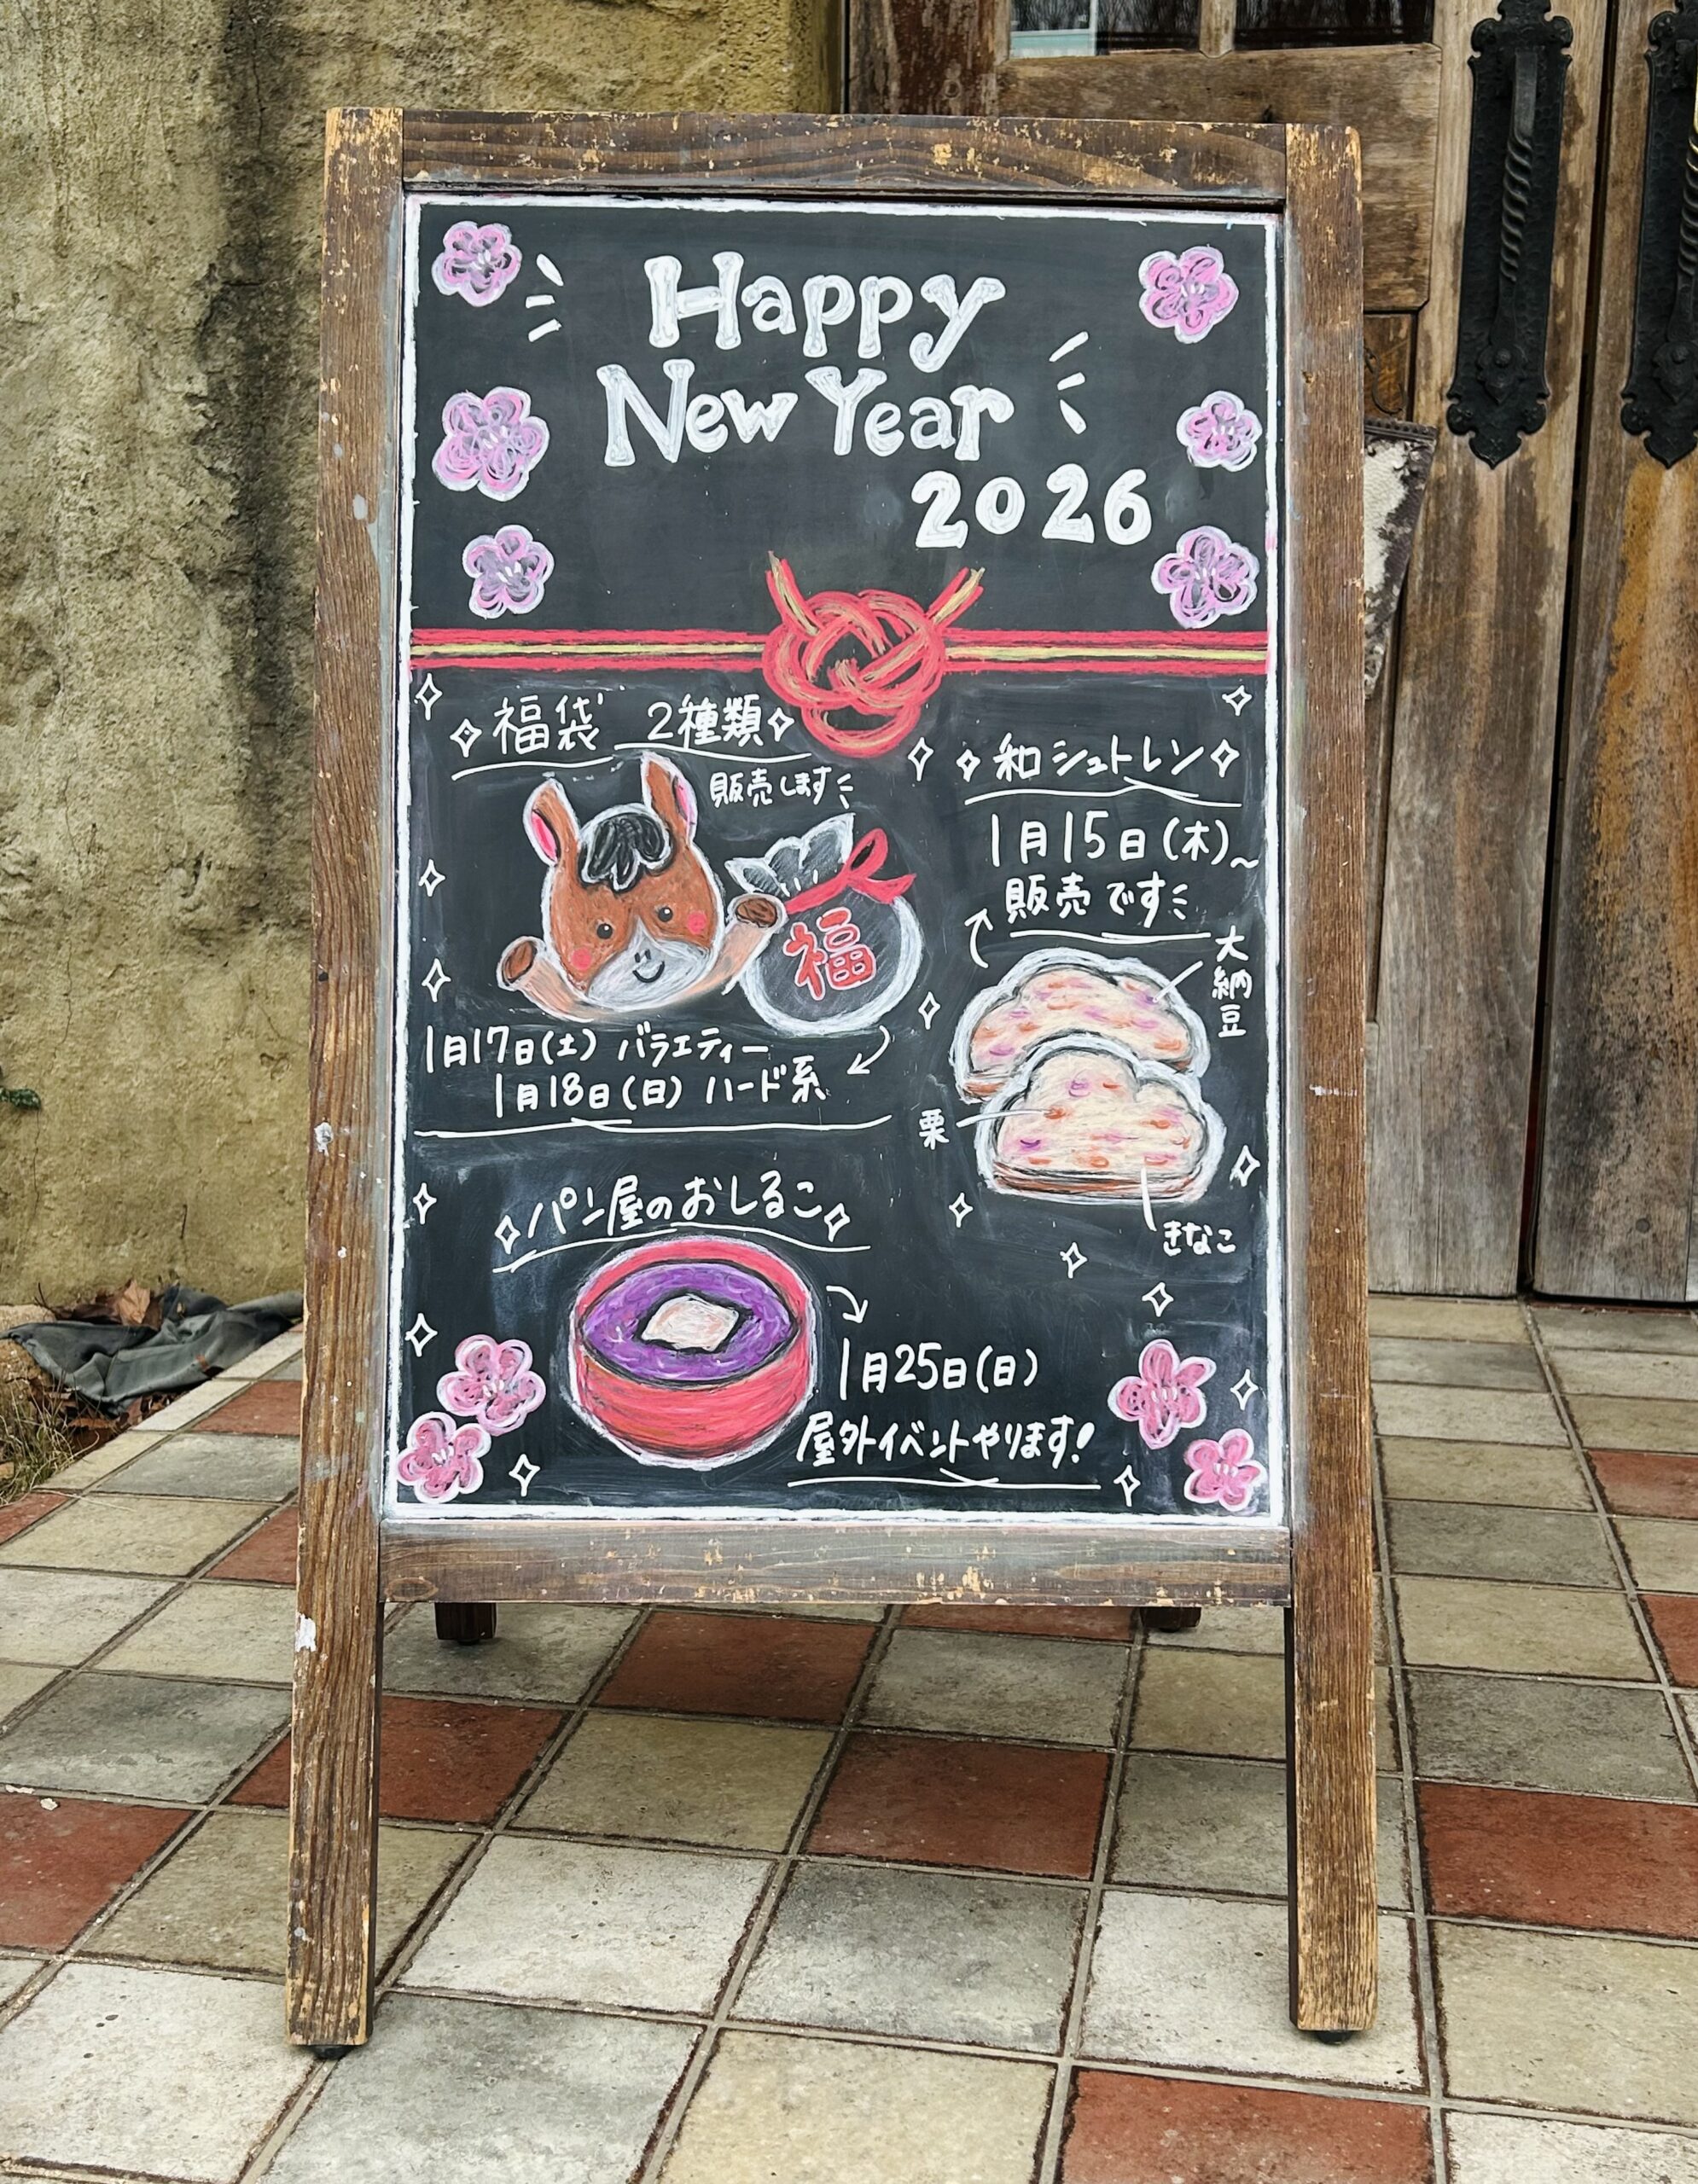 Happy
New Year
2026
福袋 2種類
販売します
福
1月17日(土) バラエティー
1月18日(日) ハード系
和シュトレン
1月15日(木)~
販売です
大納豆
栗
きなこ
パン屋のおしるこ
1月25日(日)
屋外イベントやります!